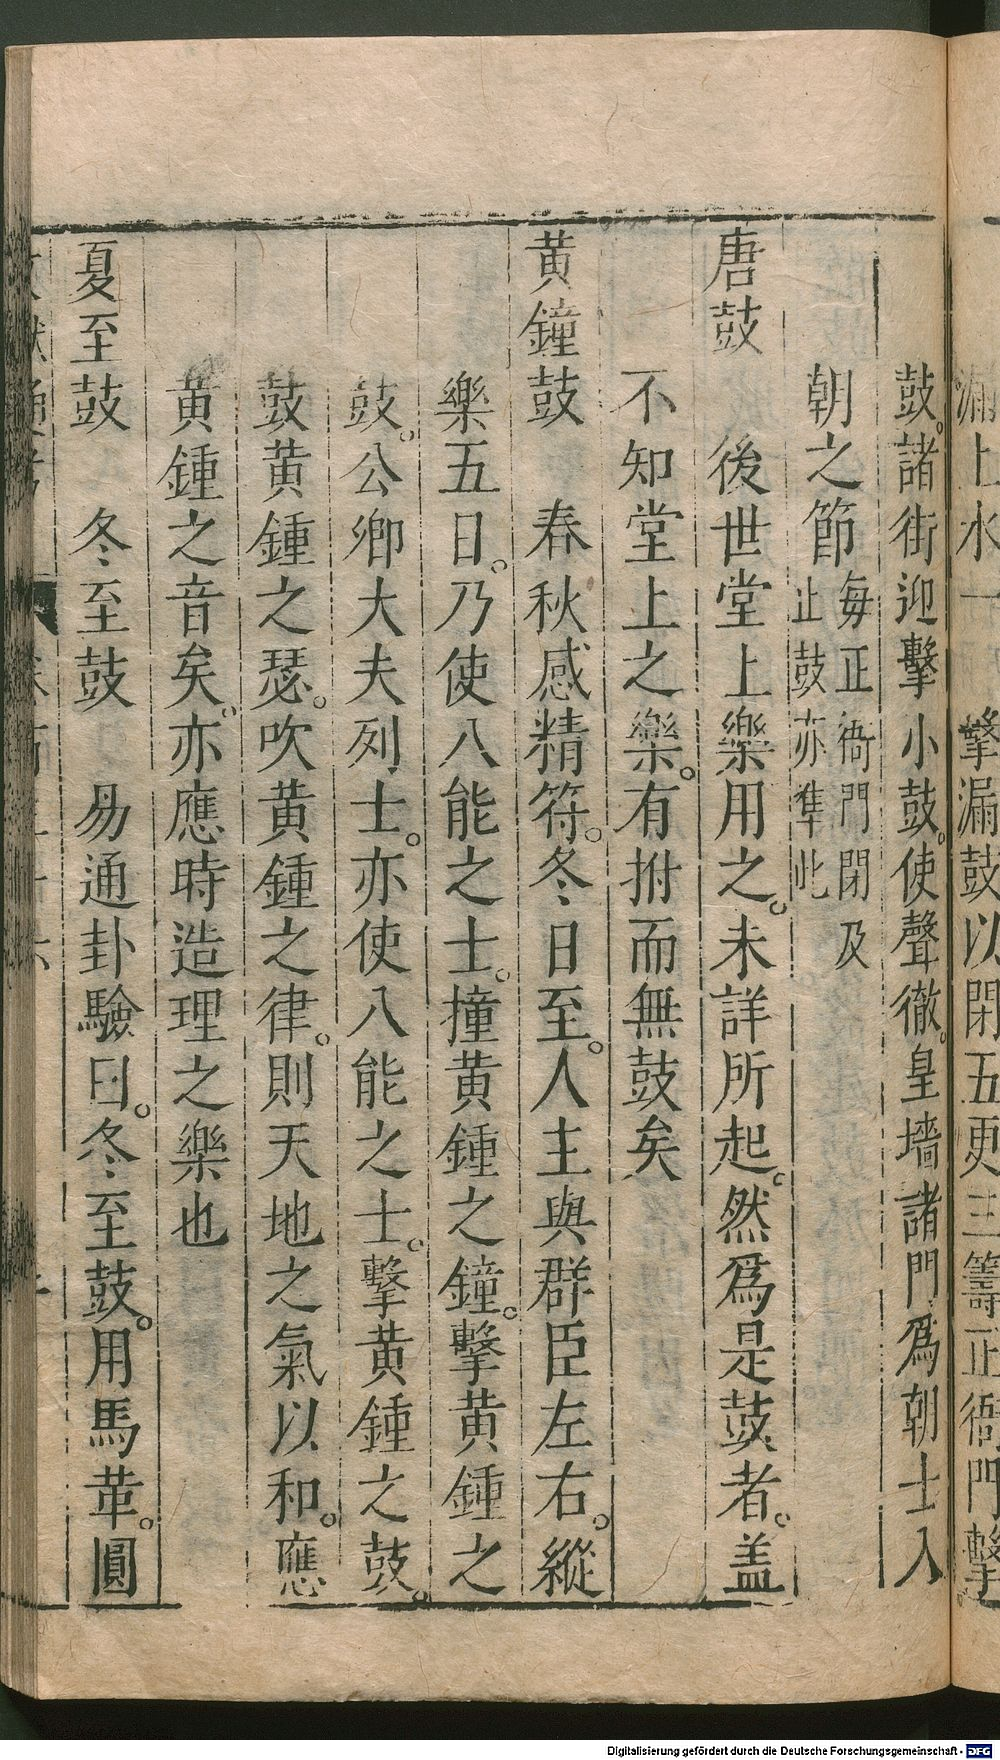 漏上水一
擊漏鼓以閉五更三籌正衙門擊
鼓諸街迎擊小鼓使聲徹皇墻諸門爲朝士入
朝之節
每正衙門閉及
止鼓亦準此
唐鼓　後世堂上樂用之未詳所起然爲是鼓者盖
不知堂上之樂有拊而無鼓矣
黃鐘鼓　春秋感精符冬日至人主與群臣左右縱
樂五日乃使八能之士撞黃鍾之鐘擊黃鍾之
鼓公卿大夫列士亦使八能之士擊黃鍾之鼓
鼓黃鍾之瑟吹黃鍾之律則天地之氣以和應
黃鍾之音矣亦應時造理之樂也
夏至鼓　冬至鼓　易通卦驗曰冬至鼓用馬革圓
Digitalisierung gefördert durch die Deutsche Forschungsgemeinschaft - DFG